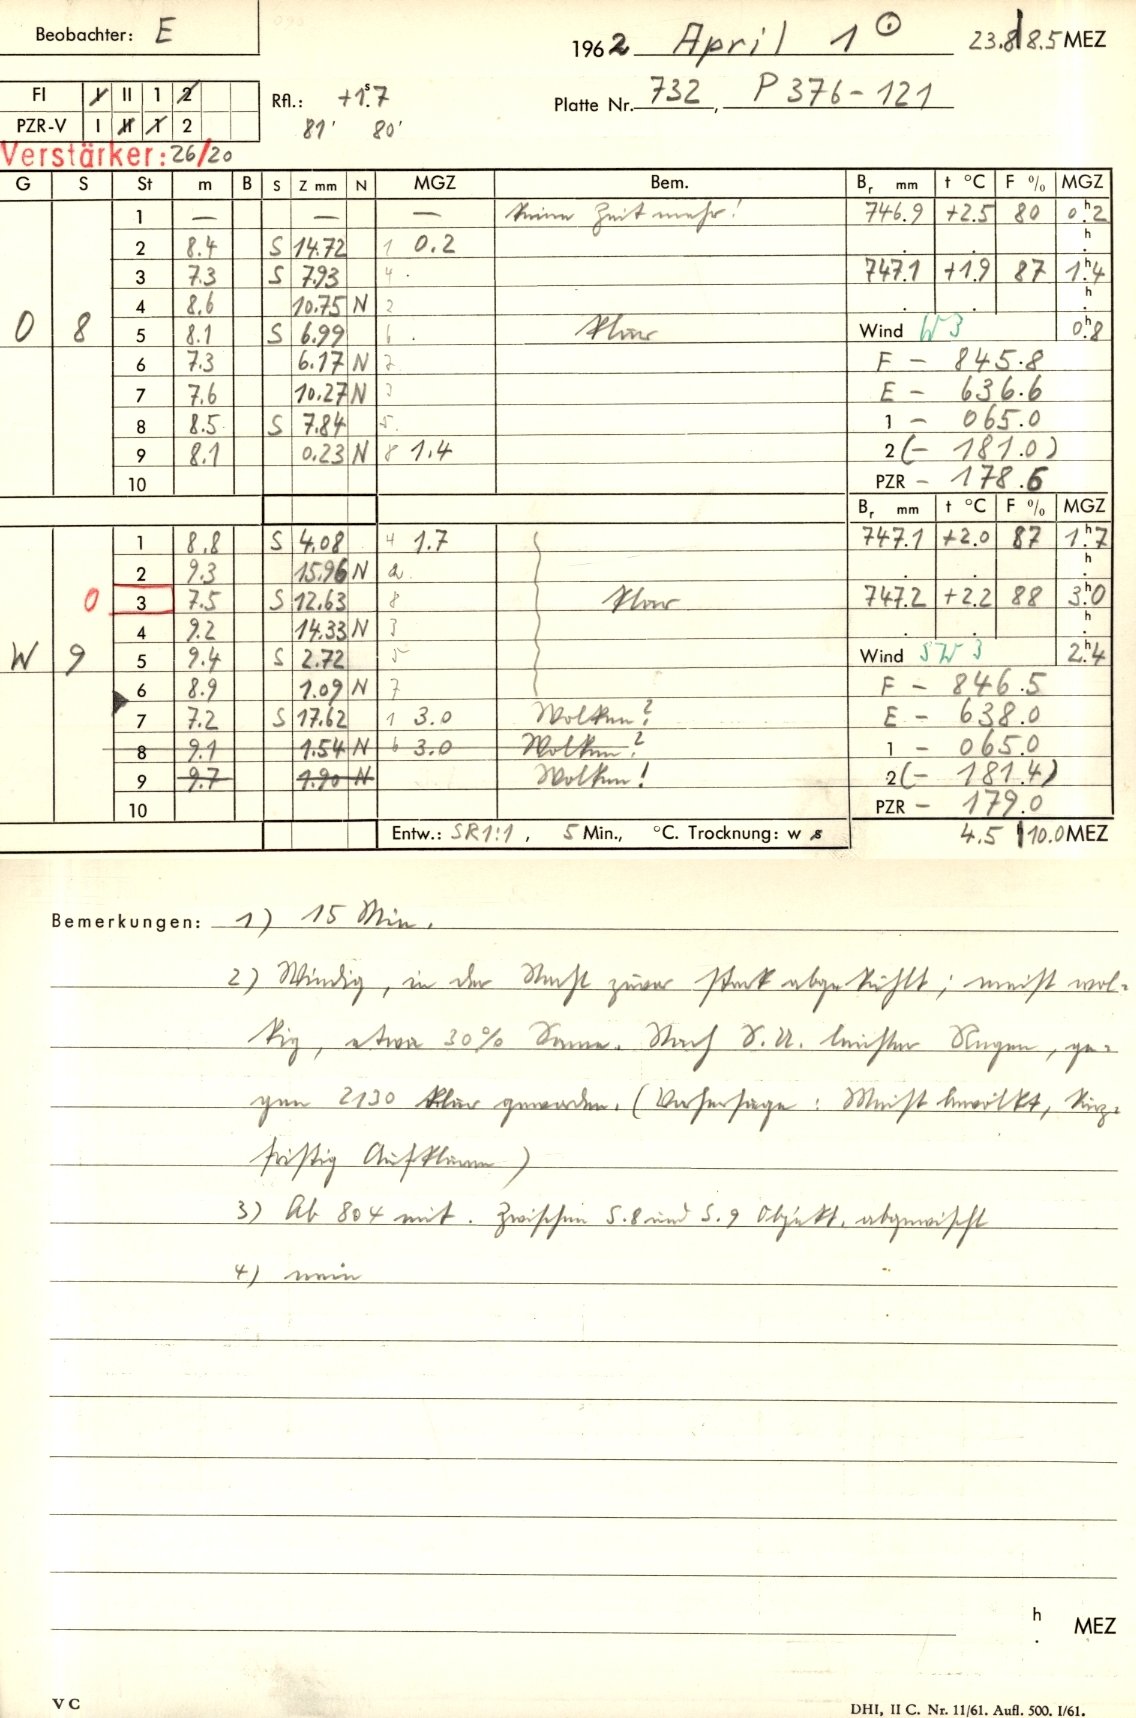 Beobachter: E
1962 April 1 ⊙ 23.8 | 8.5 MEZ
FI I II 1 2
Rfl.: +1ˢ.7
Platte Nr. 732, P 376-121
PZR-V I II 1 2
81' 80'
Verstärker: 26/20
G S St m B S Z mm N MGZ Bem. Bᵣ mm t °C F % MGZ
1 — — — Keine Zeit mehr! 746.9 +2.5 80 0ʰ.2
2 8.4 S 14.72 1 0.2 . . h.
3 7.3 S 7.93 4 . 747.1 +1.9 87 1ʰ.4
4 8.6 10.75 N 2 . . h.
O 8 5 8.1 S 6.99 6 . klar Wind W 3 0ʰ.8
6 7.3 6.17 N 7 F – 845.8
7 7.6 10.27 N 3 E – 636.6
8 8.5 S 7.84 5. 1 – 065.0
9 8.1 0.23 N 8 1.4 2 (– 181.0)
10 PZR – 178.6
Bᵣ mm t °C F % MGZ
1 8.8 S 4.08 4 1.7 747.1 +2.0 87 1ʰ.7
2 9.3 15.96 N 2 . . h.
0 3 7.5 S 12.63 8 klar 747.2 +2.2 88 3ʰ.0
4 9.2 14.33 N 3 . . h.
W 9 5 9.4 S 2.72 5 Wind SW 3 2ʰ.4
6 8.9 1.09 N 7 F – 846.5
7 7.2 S 17.62 1 3.0 Wolken? E – 638.0
8 9.1 1.54 N 6 3.0 Wolken? 1 – 065.0
9 9.7 1.90 N Wolken! 2 (– 181.4)
10 PZR – 179.0
Entw.: SR1:1, 5 Min., °C. Trocknung: w s 4.5 | 10.0 MEZ
Bemerkungen: 1) 15 Min.
2) Windig, in der Nacht zuvor stark abgekühlt; meist wol-
kig, etwa 30% Sonne. Nach S.U. leichter Regen, ge-
gen 2130 klar geworden. (Vorhersage: Meist bewölkt, kurz-
fristig Aufklaren)
3) Ab 804 mit. Zwischen S.8 und S.9 Objekt. abgewischt
4) nein
h. MEZ
V C
DHI, II C. Nr. 11/61. Aufl. 500. I/61.